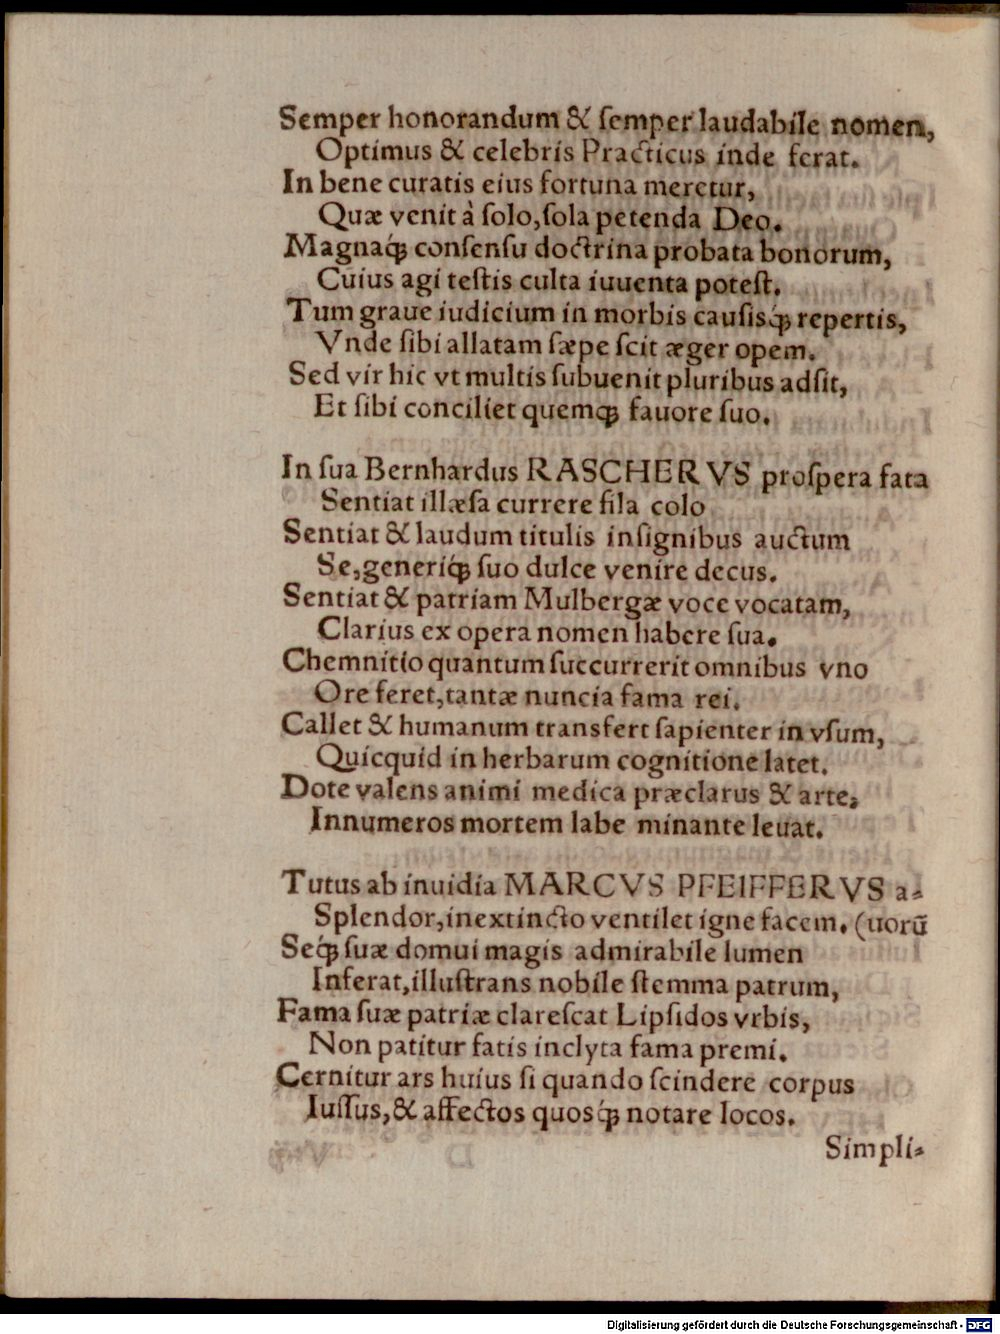 Semper honorandum & ſemper laudabile nomen,
Optimus & celebris Practicus inde ferat.
In bene curatis eius fortuna meretur,
Quæ venit à ſolo,ſola petenda Deo.
Magnaq́ꝫ conſenſu doctrina probata bonorum,
Cuius agi teſtis culta iuuenta poteſt.
Tum graue iudicium in morbis cauſisq́ꝫ repertis,
Vnde ſibi allatam ſæpe ſcit æger opem.
Sed vir hic vt multis ſubuenit pluribus adſit,
Et ſibi conciliet quemqꝫ fauore ſuo.
In ſua Bernhardus RASCHERVS proſpera fata
Sentiat illæſa currere fila colo
Sentiat & laudum titulis inſignibus auctum
Se,generiq́ꝫ ſuo dulce venire decus.
Sentiat & patriam Mulbergæ voce vocatam,
Clarius ex opera nomen habere ſua.
Chemnitio quantum ſuccurrerit omnibus vno
Ore feret,tantæ nuncia fama rei.
Callet & humanum transfert ſapienter in vſum,
Quicquid in herbarum cognitione latet.
Dote valens animi medica præclarus & arte,
Innumeros mortem labe minante leuat.
Tutus ab inuidia MARCVS PFEIFFERVS a⸗
Splendor,inextincto ventilet igne facem. (uorũ
Seq́ꝫ ſuæ domui magis admirabile lumen
Inferat,illuſtrans nobile ſtemma patrum,
Fama ſuæ patriæ clareſcat Lipſidos vrbis,
Non patitur fatis inclyta fama premi.
Cernitur ars huius ſi quando ſcindere corpus
Iuſſus,& affectos quosq́ꝫ notare locos.
Simpli⸗
Digitalisierung gefördert durch die Deutsche Forschungsgemeinschaft - DFG